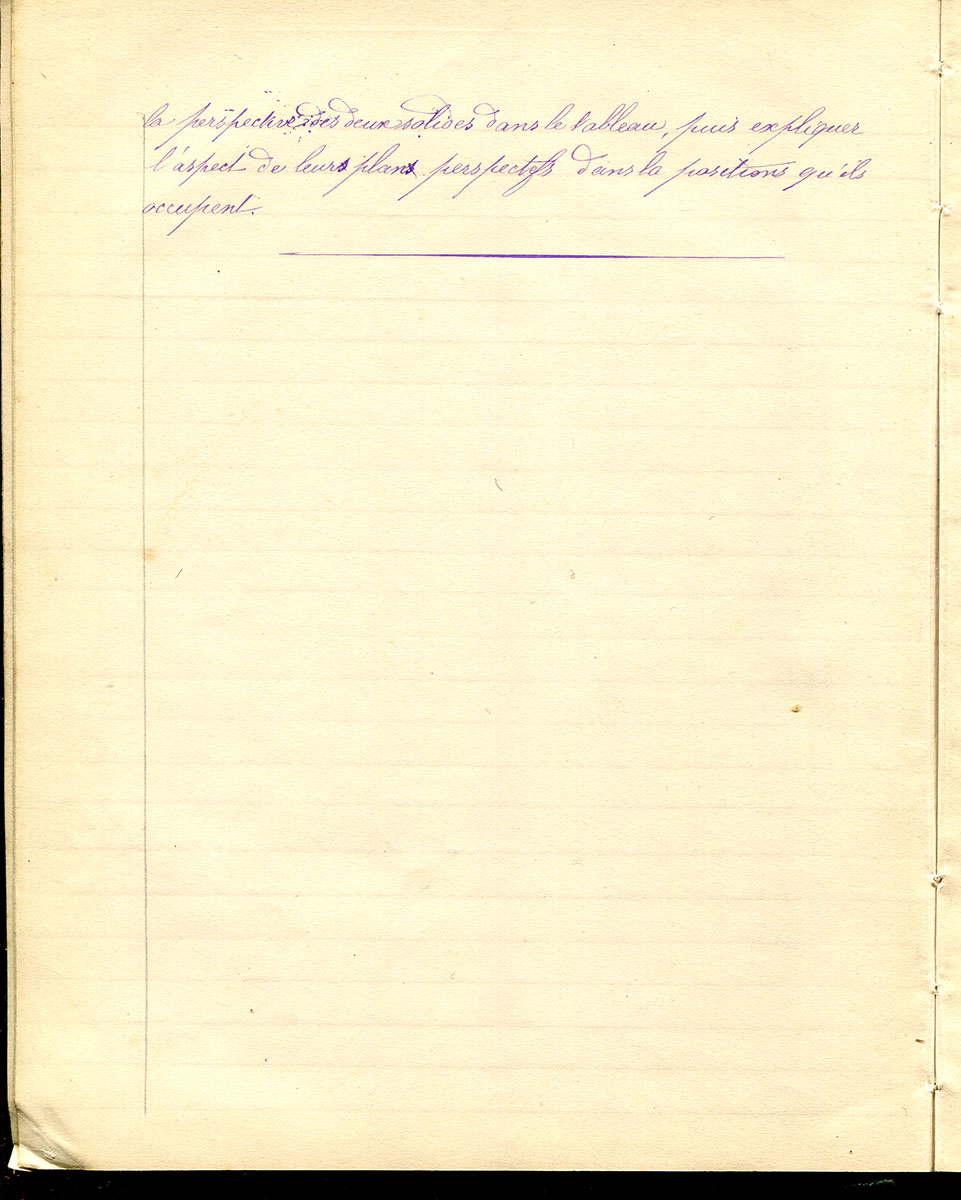 la perspective des deux solides dans le tableau, puis expliquer
l'aspect de leurs plans perspectifs dans la positions qu'ils
occupent.